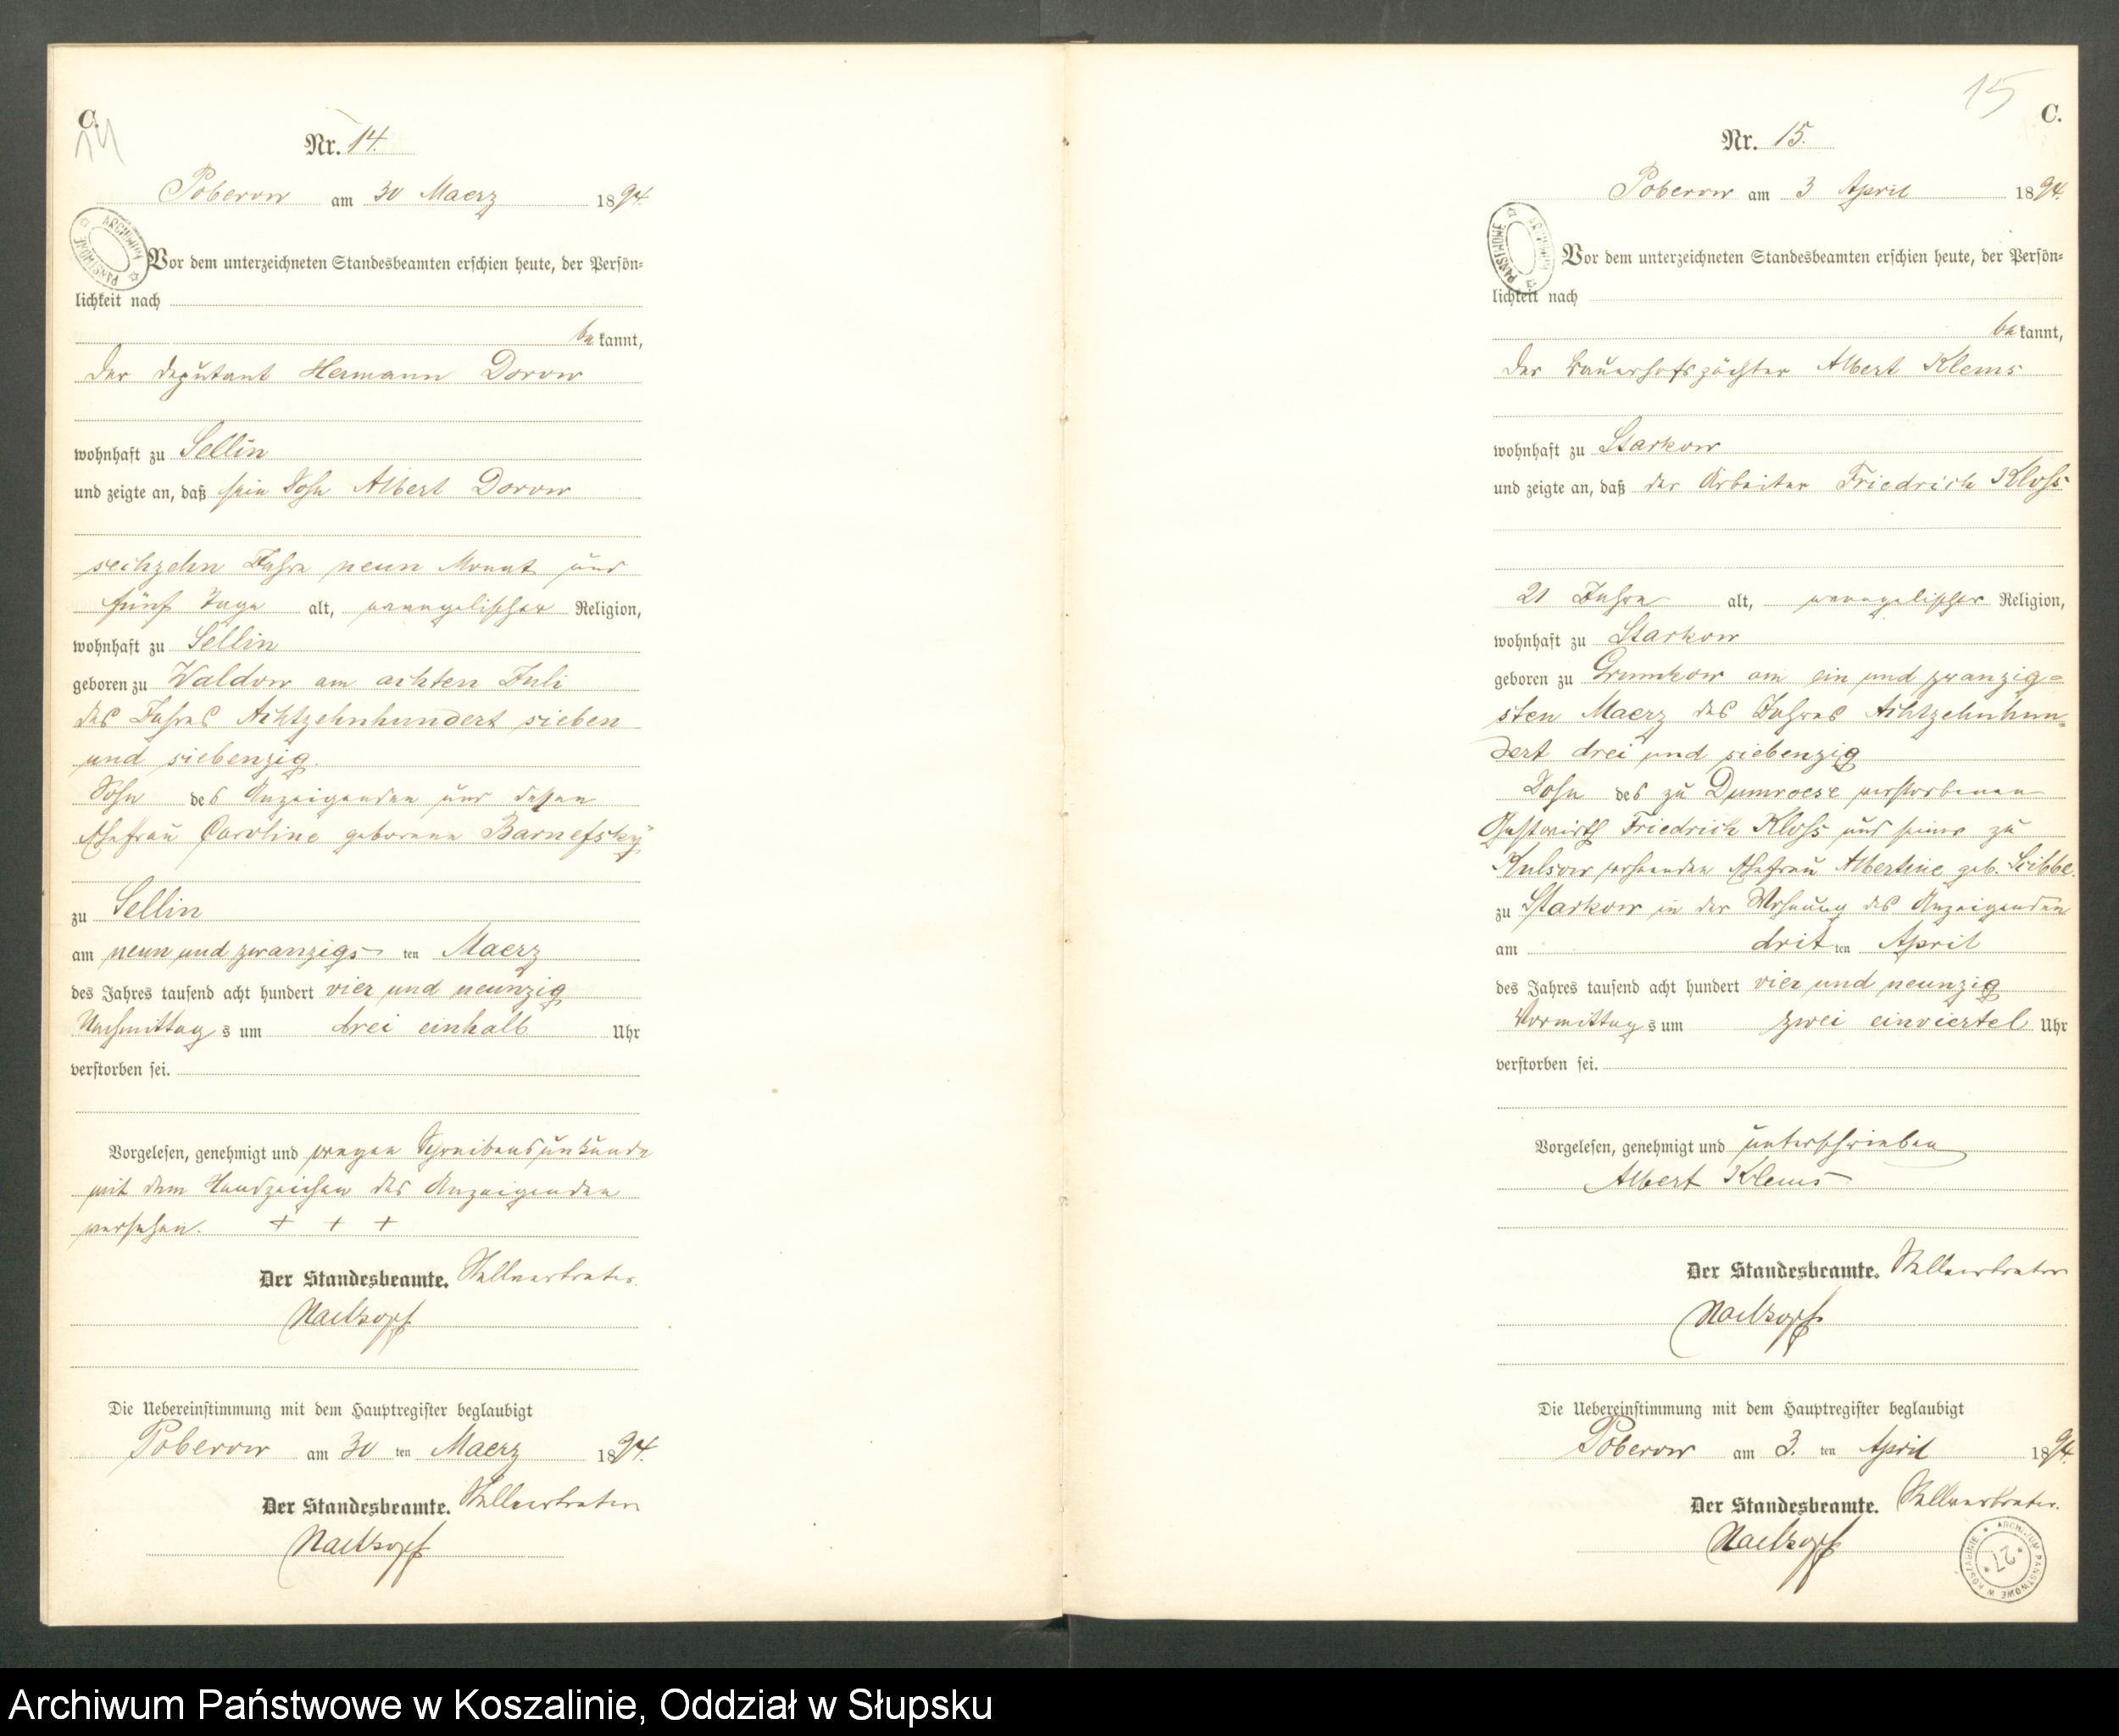 C.
14
Nr. 14.
Poberow am 30 Maerz 1894.
ARCHIWUM PAŃSTWOWE
Vor dem unterzeichneten Standesbeamten erschien heute, der Persön=
lichkeit nach
bekannt,
der Deputant Hermann Dorow
wohnhaft zu Sellin
und zeigte an, daß sein Sohn Albert Dorow
sechzehn Jahre neun Monat und
fünf Tage alt, evangelischer Religion,
wohnhaft zu Sellin
geboren zu Waldow am achten Juli
des Jahres Achtzehnhundert sieben
und siebenzig.
Sohn des Anzeigenden und dessen
Ehefrau Caroline geborene Barnefsky
zu Sellin
am neun und zwanzigsten Maerz
des Jahres tausend acht hundert vier und neunzig
Nachmittags um drei einhalb Uhr
verstorben sei.
Vorgelesen, genehmigt und wegen Schreibensunkunde
mit dem Handzeichen des Anzeigenden
versehen. + + +
Der Standesbeamte. Stellvertreter.
Die Uebereinstimmung mit dem Hauptregister beglaubigt
Poberow am 30 ten Maerz 1894.
Der Standesbeamte. Stellvertreter
15
C.
Nr. 15.
Poberow am 3 April 1894.
ARCHIWUM PAŃSTWOWE
Vor dem unterzeichneten Standesbeamten erschien heute, der Persön=
lichkeit nach
bekannt,
der Bauerhofspächter Albert Klems
wohnhaft zu Starkow
und zeigte an, daß der Arbeiter Friedrich Kloss
21 Jahre alt, evangelischer Religion,
wohnhaft zu Starkow
geboren zu Grumkow am ein und zwanzig=
sten Maerz des Jahres Achtzehnhun=
dert drei und siebenzig
Sohn des zu Dumroese verstorbenen
Gastwirth Friedrich Kloss und seiner zu
Kulsow wohnenden Ehefrau Albertine geb.
zu Starkow in der Wohnung des Anzeigenden
am dritten April
des Jahres tausend acht hundert vier und neunzig
Vormittags um zwei einviertel Uhr
verstorben sei.
Vorgelesen, genehmigt und unterschrieben
Albert Klems
Der Standesbeamte. Stellvertreter
Die Uebereinstimmung mit dem Hauptregister beglaubigt
Poberow am 3. ten April 1894.
Der Standesbeamte. Stellvertreter.
ARCHIWUM PAŃSTWOWE W KOSZALINIE
* 27 *
Archiwum Państwowe w Koszalinie, Oddział w Słupsku